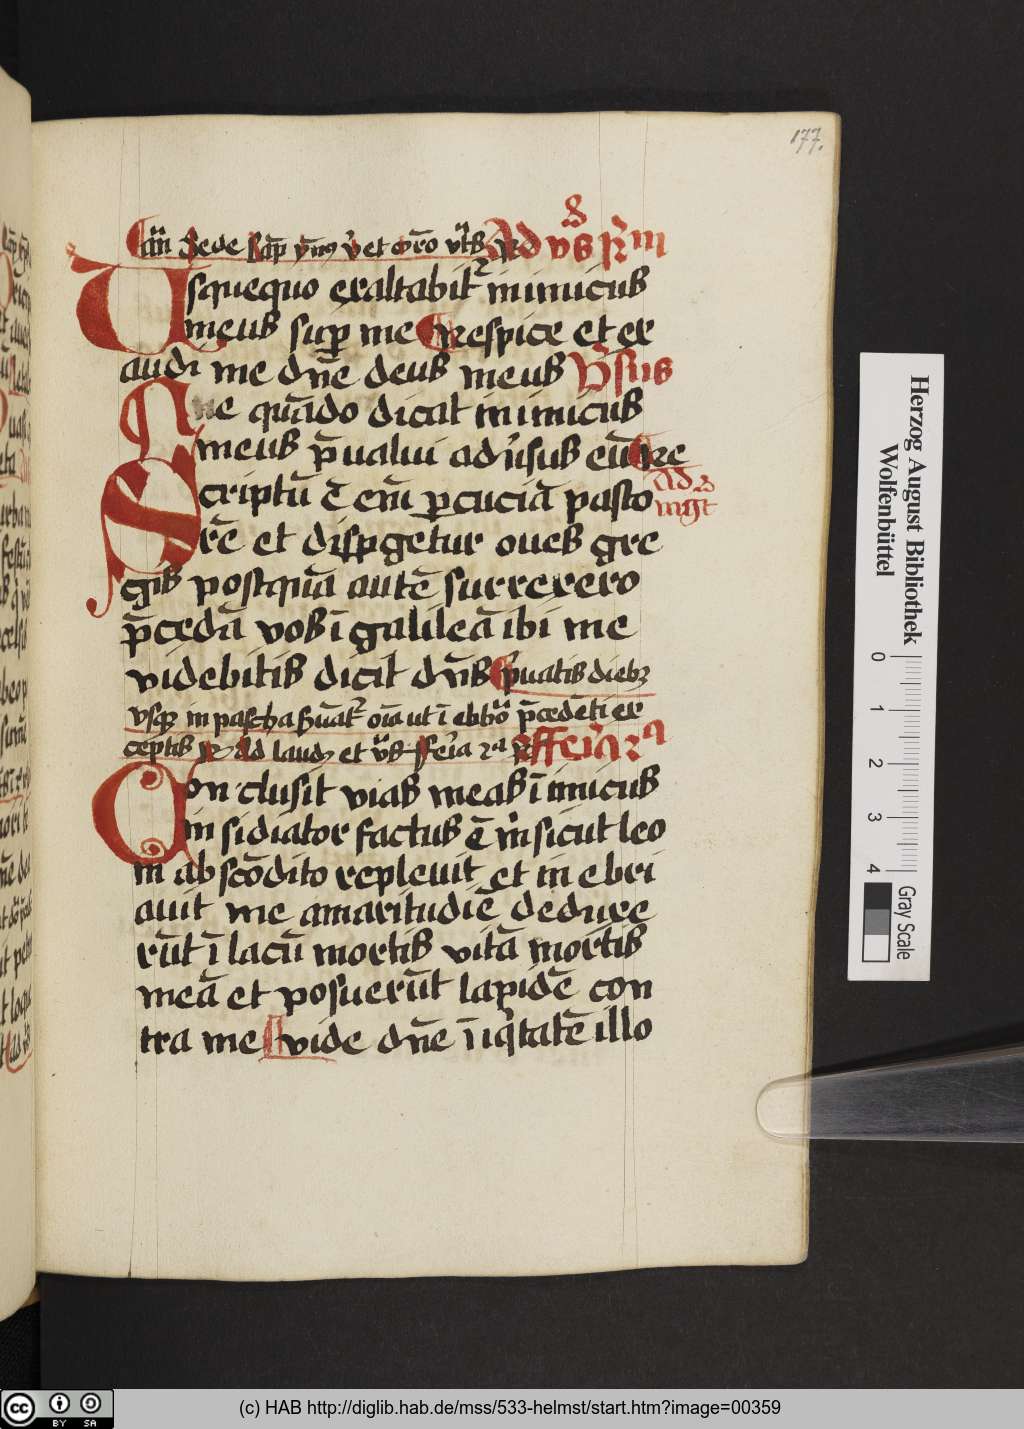 177.
añ Sede Cap̄ ymꝰ v̄ et or̄o vt̉s R Ad vs̄ Rm
Usquequo exaltabit᷑ inimicus
meus sup̱ me Respice et ex
audi me dn̄e deus meus Vsus
Ne qn̄do dicat inimicus
meus p̄ualui adu̓sus eū Re
Scriptū ē em̄ p̱cuciā pasto
Ad
mgt
rē et disp̱getur oues gre
gis postquā autē surrexero
p̄cedā vos ī galileā ibi me
videbitis dicit dn̄s P̓uatis dieb⁊
vsq⁊ in pascha suāt᷑ oīa ut ī ebdō p̄cedēti ex
ceptis R Ad laud⁊ et vs̄ ffe̓ia 2ª R ffe̓ia 2ª
Con clusit vias meas ī imicus
in sidiator factus ē m̓ sicut leo
in abscōdito repleuit et in ebri
auit me amaritudīe deduxe
rūt ī lacū mortis vitā mortis
meā et posuerūt lapidē con
tra me vide dn̄e īiq̓tatē illo
Herzog August Bibliothek
Wolfenbüttel
0
1
2
3
4
Gray Scale
cc BY SA
(c) HAB http://diglib.hab.de/mss/533-helmst/start.htm?image=00359